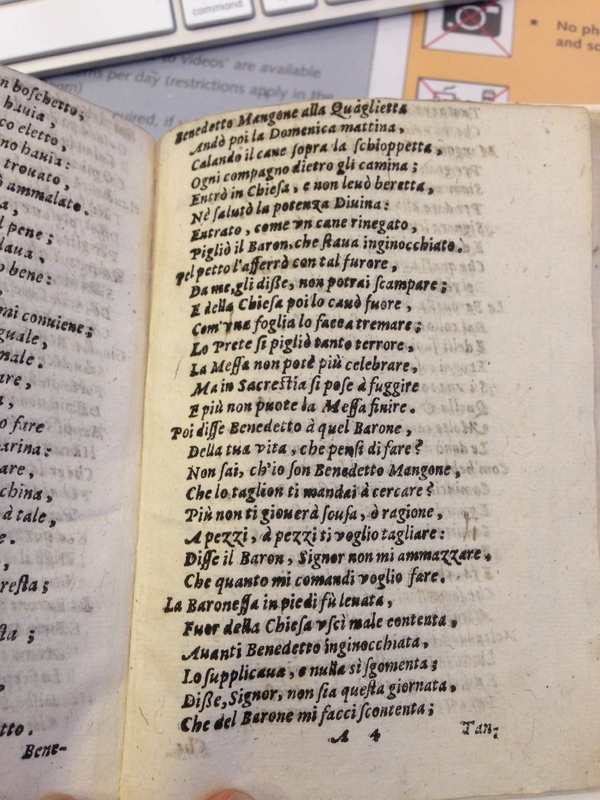 command
No ph
and sc
to Videos' are available
ms per day (restrictions apply in the
uired, if
n boſchetto;
hauia,
co eletto,
no hauia:
trouato,
ò ammalato.
a,
l pene;
laua,
o bene:
mi conuiene;
guale,
nale.
are,
o fare
arina:
are,
china,
à tale,
e.
reſta;
ſta;
tto.
Bene-
Benedetto Mangone alla Quaglietta
Andò poi la Domenica mattina,
Calando il cane ſopra la ſchioppetta,
Ogni compagno dietro gli camina;
Entrò in Chieſa, e non leuò beretta,
Nè ſalutò la potenza Diuina:
Entrato, come vn cane rinegato,
Pigliò il Baron, che ſtaua inginocchiato.
Pel petto l'afferrò con tal furore,
Da me, gli diße, non potrai ſcampare;
E della Chieſa poi lo cauò fuore,
Com'vna foglia lo facea tremare;
Lo Prete ſi pigliò tanto terrore,
La Meſſa non potè più celebrare,
Ma in Sacreſtia ſi poſe à fuggire
E più non puote la Meſſa finire.
Poi diſſe Benedetto à quel Barone,
Della tua vita, che penſi di fare?
Non ſai, ch'io ſon Benedetto Mangone,
Che lo taglion ti mandai à cercare?
Più non ti giouerà ſcuſa, ò ragione,
A pezzi, à pezzi ti voglio tagliare:
Diſſe il Baron, Signor non mi ammazzare,
Che quanto mi comandi voglio fare.
La Baroneſſa in piedi fù leuata,
Fuor della Chieſa vſcì male contenta,
Auanti Benedetto inginocchiata,
Lo ſupplicaua, e nulla sì ſgomenta;
Diße, Signor, non ſia queſta giornata,
Che del Barone mi facci ſcontenta;
A 4
Tan-